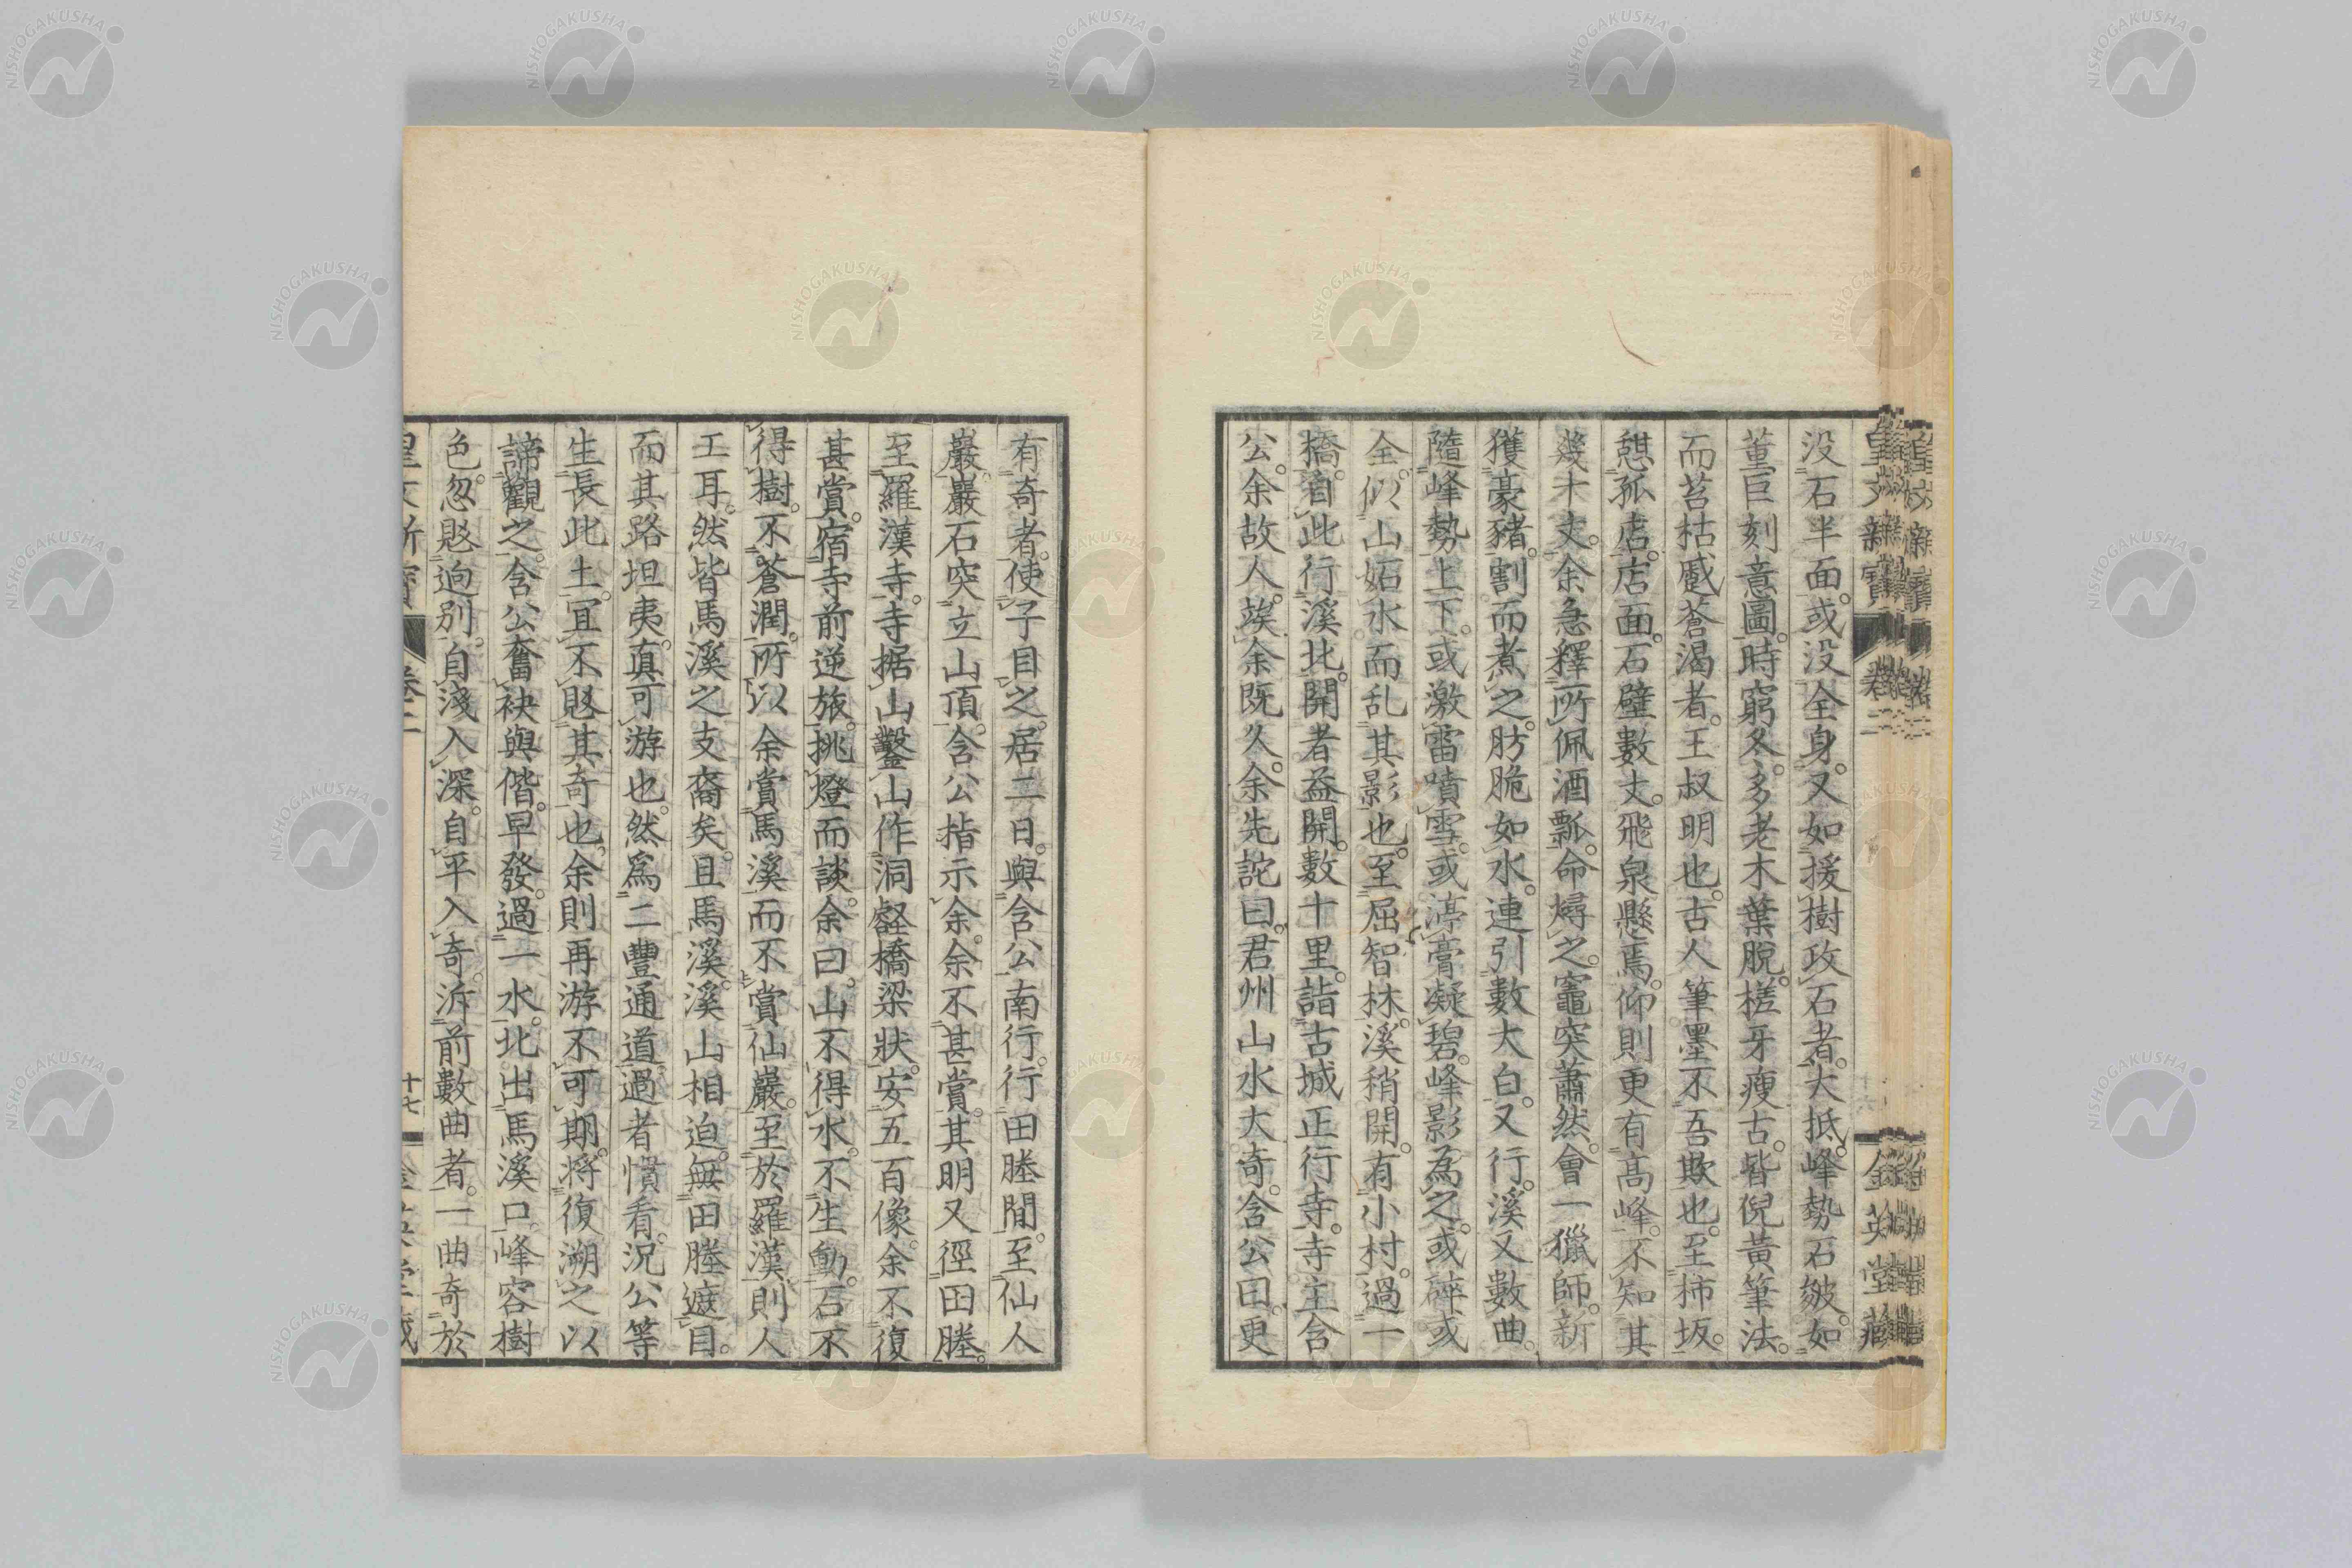 皇文新寶
卷二
金英堂藏
没石半面。或没全身。又如援樹攻石者。大抵峰勢石皴。如
董巨刻意圖。時窮冬。多老木葉脫。槎牙瘦古。皆倪黃筆法。
而苔枯蘚蒼渴者。王叔明也。古人筆墨不吾欺也。至柿坂。
憩孤店。店面。石壁數丈。飛泉懸焉。仰則更有高峰。不知其
幾十丈。余急釋所佩酒瓢。命燖之。竈突蕭然。會一獵師。新
獲豪豬。割而煮之。肪脆如水。連引數大白。又行。溪又數曲。
隨峰勢上下。或激雷噴雪。或渟膏凝碧。峰影為之。或碎或
全。似山妬水而乱其影也。至屈智林。溪稍開。有小村。過一
橋。自此行溪北。開者益開。數十里。詣古城正行寺。寺主含
公。余故人。竢余既久。余先詫曰。君州山水大奇。含公曰。更
有奇者。使子目之。居二日。與含公南行。行田塍間。至仙人
巖。巖石突立山頂。含公指示余。余不甚賞。其明又徑田塍。
至羅漢寺。寺据山。鑿山作洞壑橋梁狀。安五百像。余不復
甚賞。宿寺前逆旅。挑燈而談。余曰。山不得水。不生動。石不
得樹。不蒼潤。所以余賞馬溪而不賞仙巖。至於羅漢。則人
工耳。然皆馬溪之支裔矣。且馬溪。溪山相迫。無田塍遮目。
而其路坦夷。真可游也。然為二豐通道。過者慣看。況公等
生長此土。宜不慇其奇也。余則再游不可期。將復溯之以
諦觀之。含公奮袂與偕。早發。過一水。北出馬溪口。峰容樹
色。忽慇逈別。自淺入深。自平入奇。泝前數曲者。一曲奇於
皇文新寶
卷二
十七